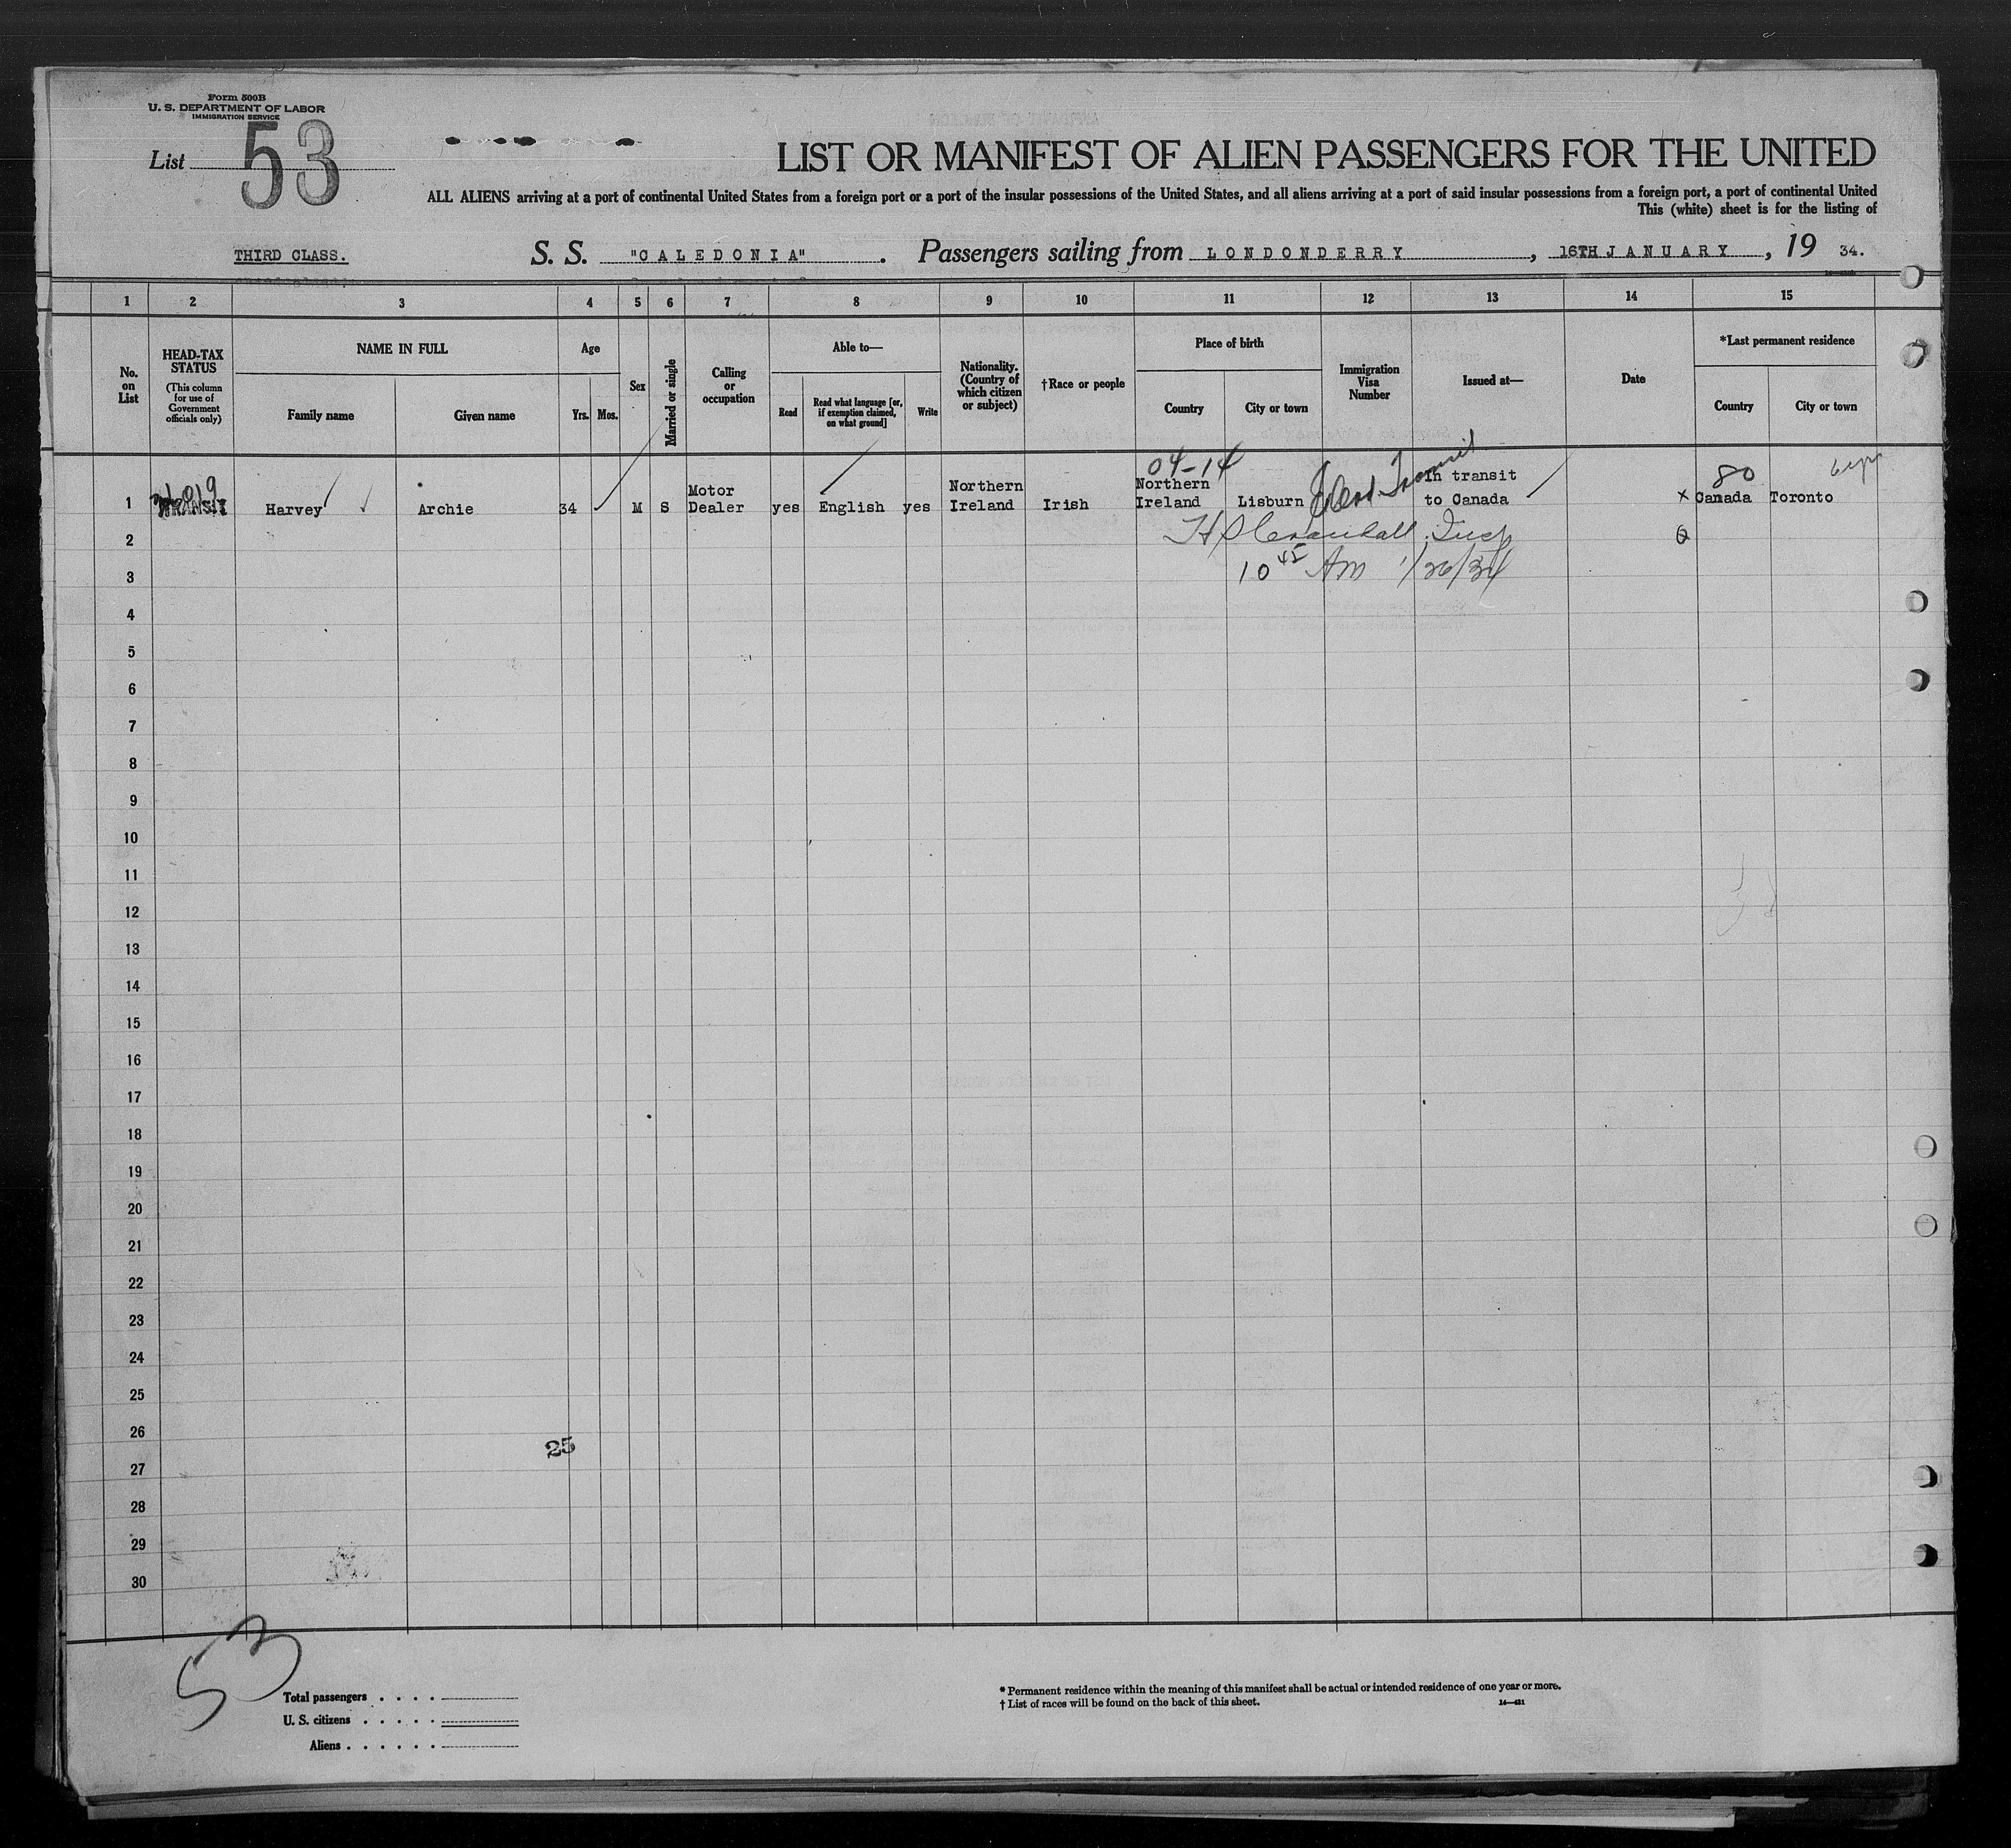 Form 500B
U. S. DEPARTMENT OF LABOR
IMMIGRATION SERVICE
List 53
LIST OR MANIFEST OF ALIEN PASSENGERS FOR THE UNITED
ALL ALIENS arriving at a port of continental United States from a foreign port or a port of the insular possessions of the United States, and all aliens arriving at a port of said insular possessions from a foreign port, a port of continental United
This (white) sheet is for the listing of
THIRD CLASS. S. S. "CALEDONIA". Passengers sailing from LONDONDERRY, 16TH JANUARY, 19 34.
1 2 3 4 5 6 7 8 9 10 11 12 13 14 15
No. on List
HEAD-TAX STATUS
(This column for use of Government officials only)
NAME IN FULL
Family name
Given name
Age
Yrs. Mos.
Sex
Married or single
Calling or occupation
Able to—
Read
Read what language [or, if exemption claimed, on what ground]
Write
Nationality. (Country of which citizen or subject)
†Race or people
Place of birth
Country
City or town
Immigration Visa Number
Issued at—
Date
*Last permanent residence
Country
City or town
04-14
80
1 TRANSIT Harvey Archie 34 M S Motor Dealer yes English yes Northern Ireland Irish Northern Ireland Lisburn Transit In transit to Canada x Canada Toronto
2 Crandall Insp
3 10 45 AM 1/26/34
4
5
6
7
8
9
10
11
12
13
14
15
16
17
18
19
20
21
22
23
24
25
26
25
27
28
29
30
53
Total passengers
U. S. citizens
Aliens
* Permanent residence within the meaning of this manifest shall be actual or intended residence of one year or more.
† List of races will be found on the back of this sheet.